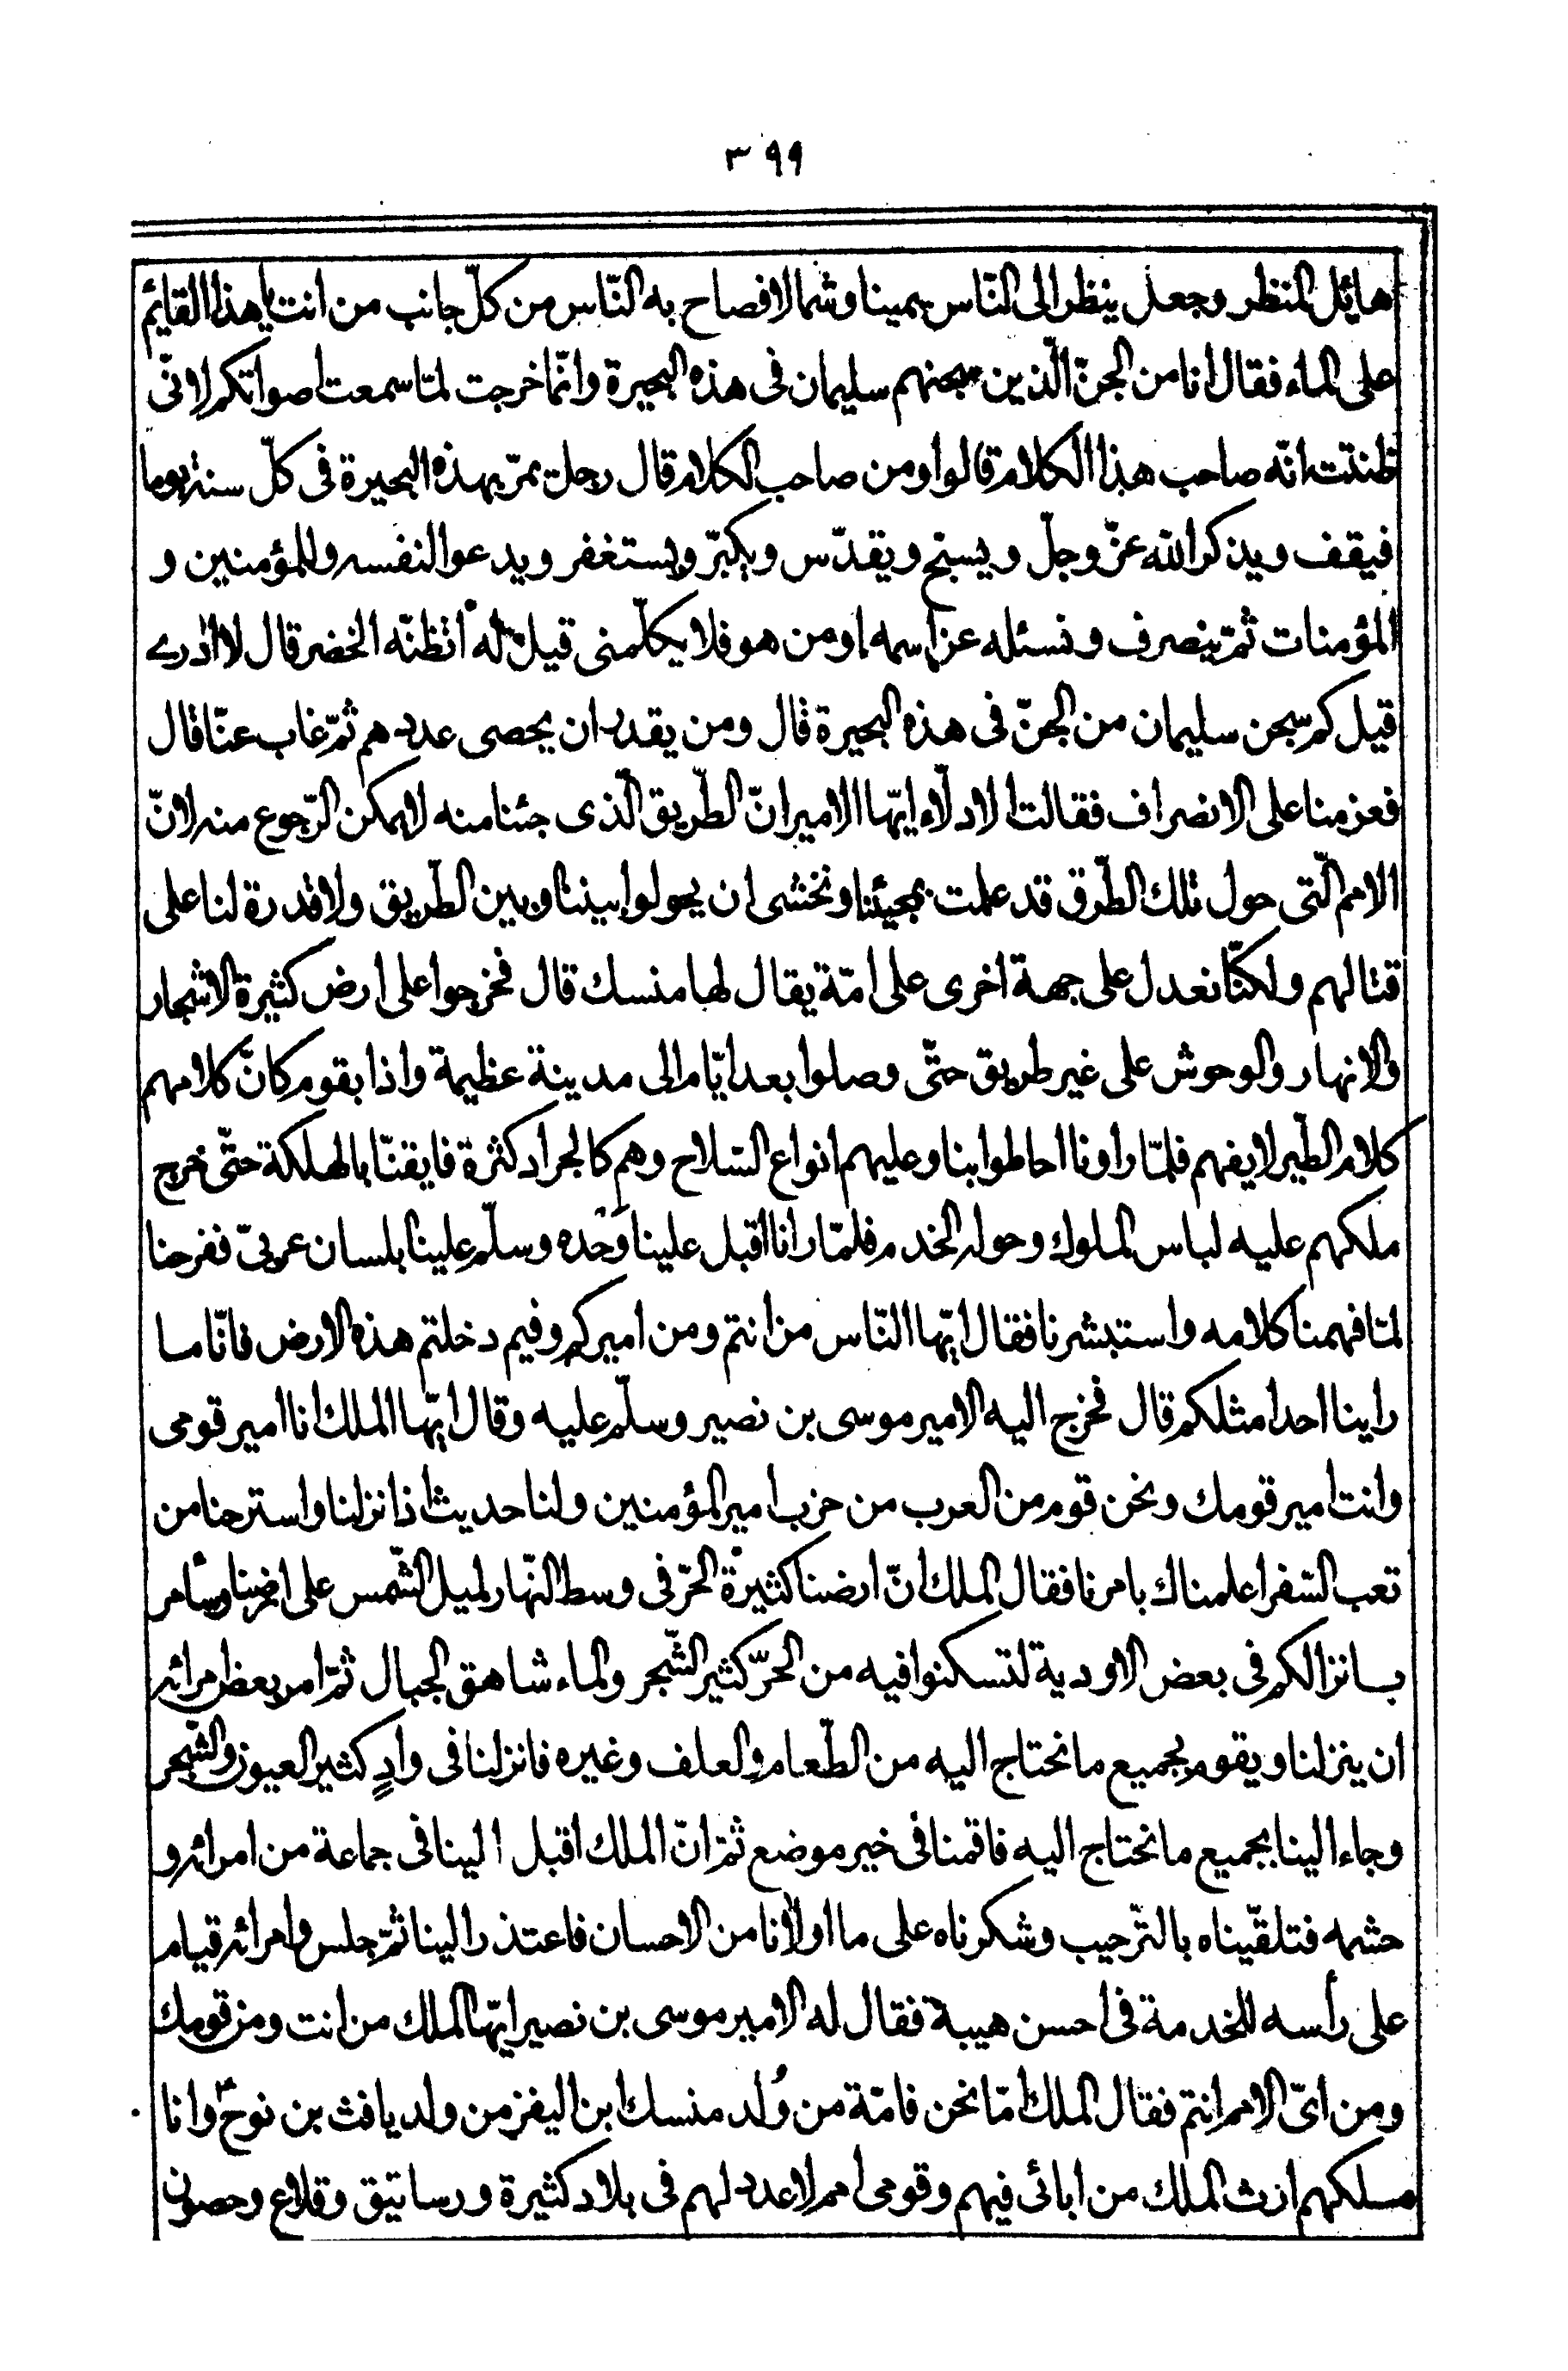 ٣٩٩
هايل المنظر وجعل ينظر الى النّاس يمينا وشمالا فصاح به النّاس من كلّ جانب من انت يا هذا القايم
على الماء فقال انا من الجنّ الّذين سجنهم سليمان فى هذه البحيرة وانّما خرجت لمّا سمعت اصواتكم لانّى
ظننت انّه صاحب هذا الكلام قالوا ومن صاحب الكلام قال رجل يمرّ بهذه البحيرة فى كلّ سنة يوما
فيقف ويذكر الله عزّ وجلّ ويسبّح ويقدّس ويكبّر ويستغفر ويدعوا لنفسه وللمؤمنين و
المؤمنات ثمّ ينصرف ونسئله عن اسمه او من هو فلا يكلّمنى قيل له اتظنّه الخضر قال لا ادرى
قيل كم سجن سليمان من الجنّ فى هذه البحيرة قال ومن يقدر ان يحصى عددهم ثمّ غاب عنّا قال
فعزمنا على الانصراف فقالت الادلّاء ايّها الامير انّ الطّريق الّذى جئنا منه لايمكن الرّجوع منه لانّ
الامم الّتى حول تلك الطّرق قد علمت بمجيئنا ونخشى ان يحولوا بيننا وبين الطّريق ولا قدرة لنا على
قتالهم ولكنّا نعدل على جهة اخرى على امّة يقال لها منسك قال فخرجوا على ارض كثيرة الاشجار
والانهار والوحوش على غير طريق حتّى وصلوا بعد ايّام الى مدينة عظيمة واذا بقوم كانّ كلامهم
كلام الطّير لا يفهم فلمّا راونا احاطوا بنا وعليهم انواع السّلاح وهم كالجراد كثرة فايقنّا بالهلكة حتّى خرج
ملكهم عليه لباس الملوك وحوله الخدم فلمّا رانا اقبل علينا وَحْده وسلّم علينا بلسان عربىّ ففرحنا
لمّا فهمنا كلامه واستبشرنا فقال ايّها النّاس من انتم ومن اميركم وفيم دخلتم هذه الارض فانّا ما
راينا احدا مثلكم قال فخرج اليه الامير موسى بن نصير وسلّم عليه وقال ايّها الملك انا امير قومى
وانت امير قومك ونحن قوم من العرب من حزب امير المؤمنين ولنا حديث اذا نزلنا واسترحنا من
تعب السّفر اعلمناك بامرنا فقال الملك انّ ارضنا كثيرة الحرّ فى وسط النّهار لميل الشّمس على ارضنا وسامر
بانزالكم فى بعض الاودية لتسكنوا فيه من الحرّ كثير الشّجر والماء شاهق الجبال ثمّ امر بعض امرائه
ان ينزلنا ويقوم بجميع ما نحتاج اليه من الطّعام والعلف وغيره فانزلنا فى وادٍ كثير العيون والشّجر
وجاء الينا بجميع ما نحتاج اليه فاقمنا فى خير موضع ثمّ انّ الملك اقبل الينا فى جماعة من امرائه و
حشمه فتلقّيناه بالتّرحيب وشكرناه على ما اولانا من الاحسان فاعتذر الينا ثمّ جلس وامرائه قيام
على رأسه للخدمة فى احسن هيبة فقال له الامير موسى بن نصير ايّها الملك من انت ومن قومك
ومن اىّ الامم انتم فقال الملك امّا نحن فامّة من وُلد منسك ابن اليفز من ولد يافث بن نوح وانا
مسلكهم ارث الملك من ابائى فيهم وقومى امم لا عدد لهم فى بلاد كثيرة ورساتيق وقلاع وحصون